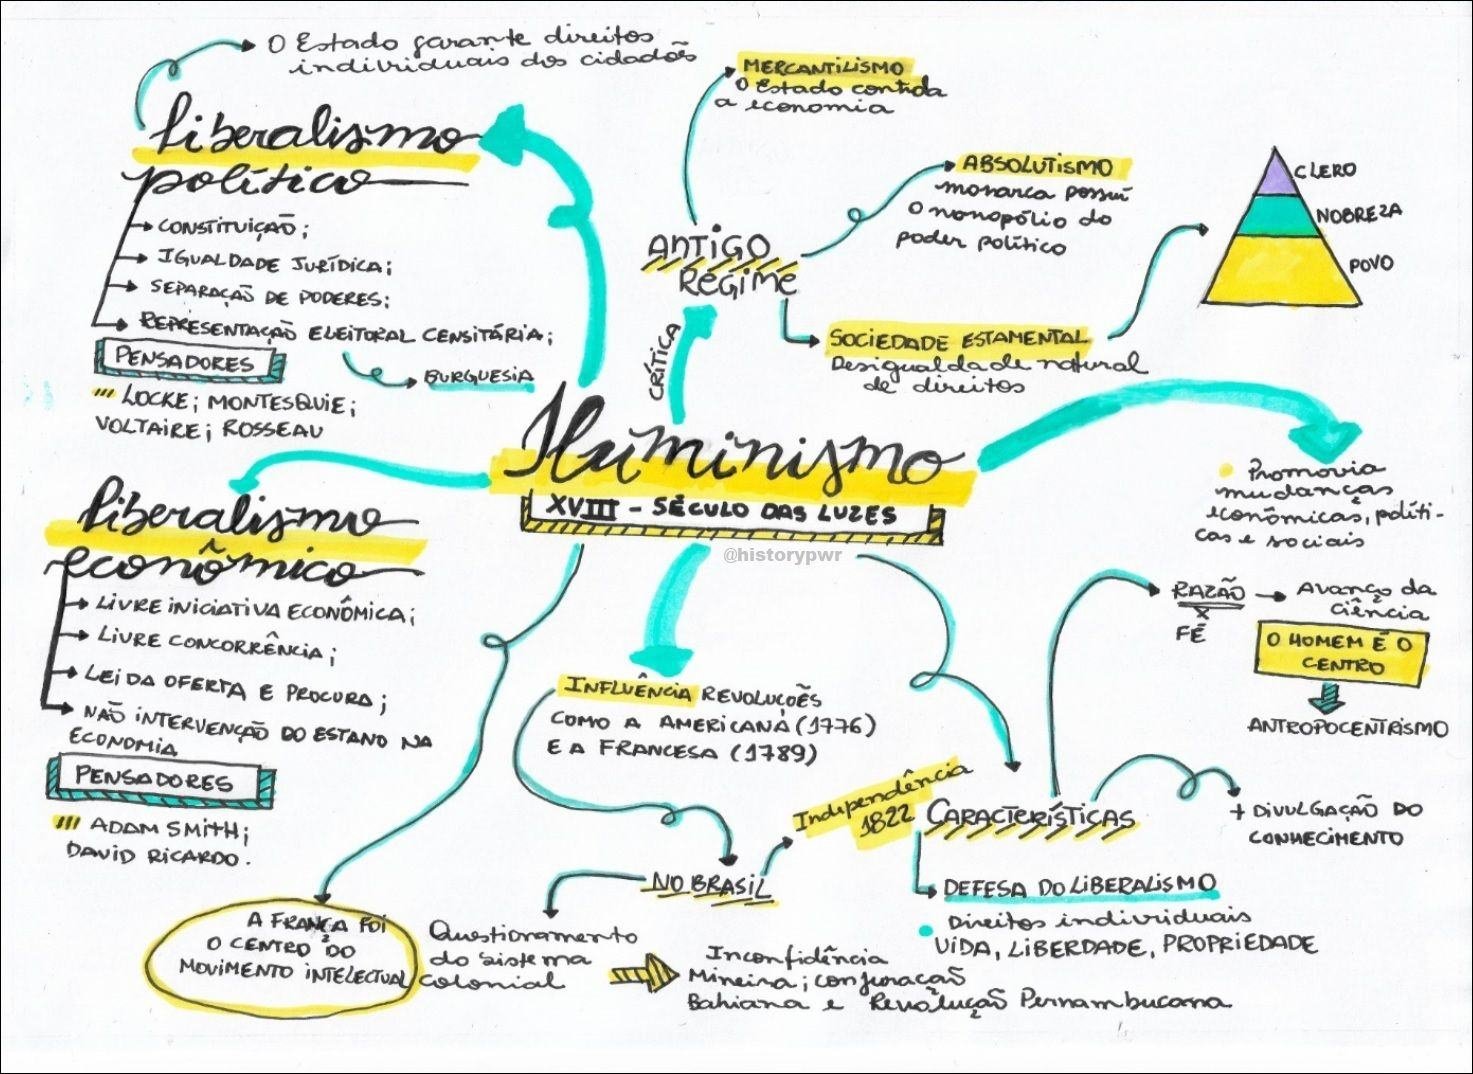 O Estado garante direitos
individuais dos cidadões
Liberalismo
político
CONSTITUIÇÃO;
IGUALDADE JURÍDICA;
SEPARAÇÃO DE PODERES;
REPRESENTAÇÃO ELEITORAL CENSITÁRIA;
BURGUESIA
PENSADORES
LOCKE; MONTESQUIE;
VOLTAIRE; ROSSEAU
MERCANTILISMO
O Estado controla
a economia
ANTIGO
REGIME
CRÍTICA
ABSOLUTISMO
monarca possui
o monopólio do
poder político
SOCIEDADE ESTAMENTAL
Desigualdade natural
de direitos
CLERO
NOBREZA
POVO
Iluminismo
XVIII - SÉCULO DAS LUZES
@historypwr
Liberalismo
econômico
LIVRE INICIATIVA ECONÔMICA;
LIVRE CONCORRÊNCIA;
LEI DA OFERTA E PROCURA;
NÃO INTERVENÇÃO DO ESTANO NA
ECONOMIA
PENSADORES
ADAM SMITH;
DAVID RICARDO.
Promovia
mudanças
econômicas, políti-
cas e sociais
RAZÃO
X
FÉ
Avanço da
ciência
O HOMEM É O
CENTRO
ANTROPOCENTRISMO
INFLUÊNCIA REVOLUÇÕES
COMO A AMERICANA (1776)
E A FRANCESA (1789)
NO BRASIL
Independência
1822
CARACTERÍSTICAS
+ DIVULGAÇÃO DO
CONHECIMENTO
DEFESA DO LIBERALISMO
Direitos individuais
VIDA, LIBERDADE, PROPRIEDADE
A FRANÇA FOI
O CENTRO DO
MOVIMENTO INTELECTUAL
Questionamento
do sistema
colonial
Inconfidência
Mineira; conjuração
Bahiana e Revolução Pernambucana